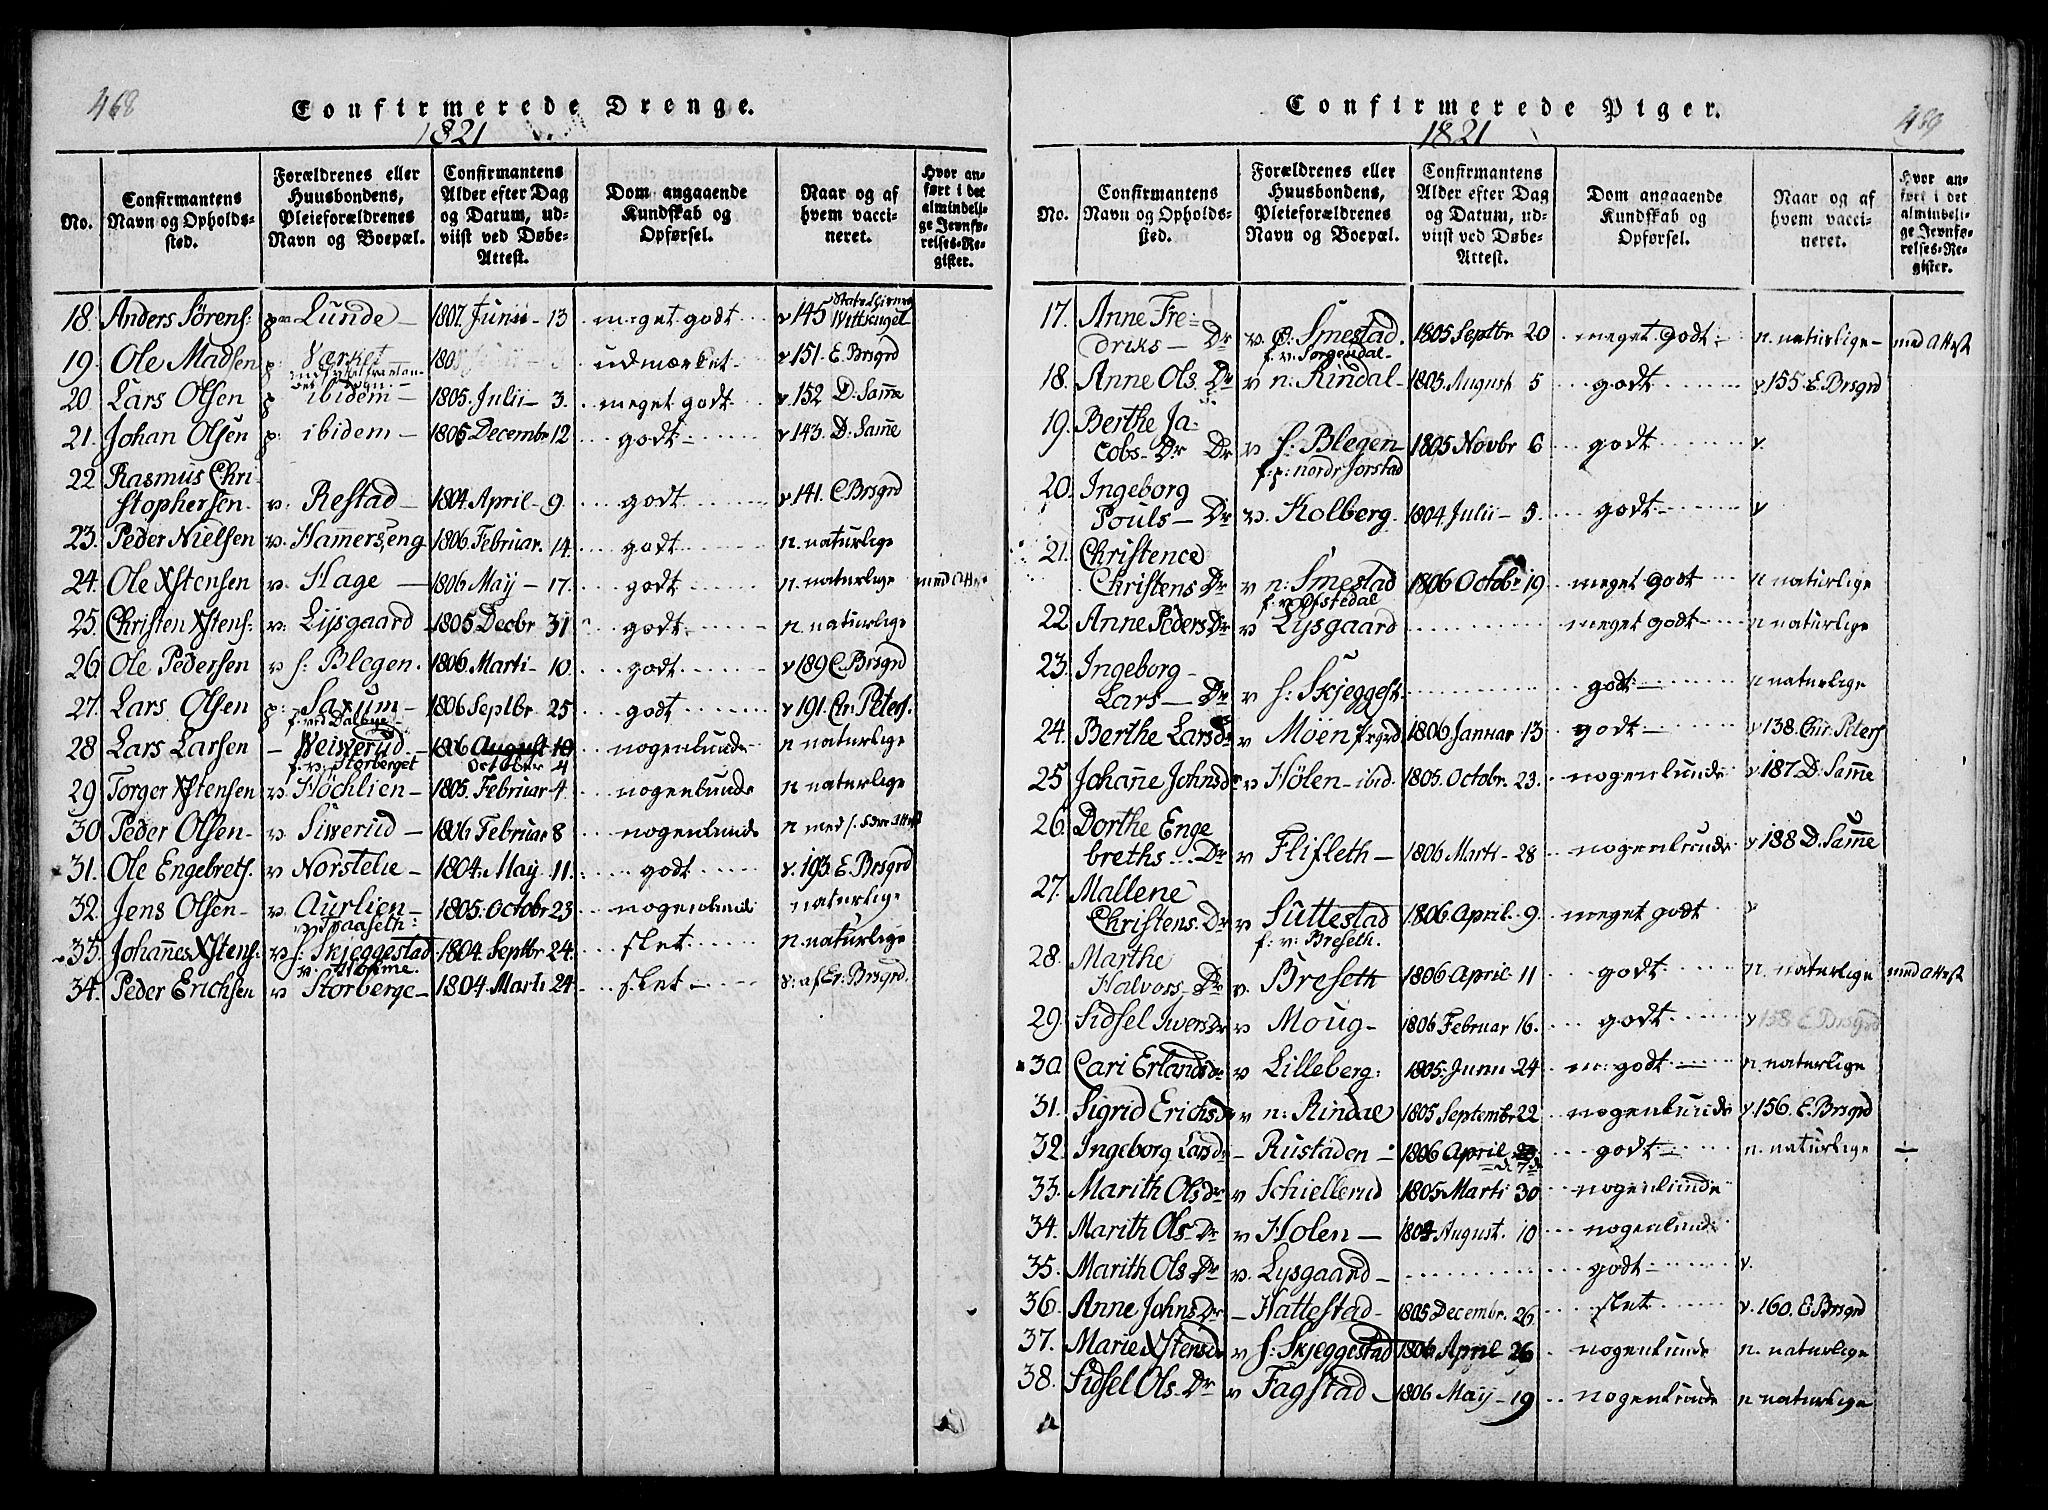 468
Confirmerede Drenge.
1821
No.
Confirmantens Navn og Opholds-sted.
Forældrenes eller Huusbondens, Pleieforældrenes Navn og Boepæl.
Confirmantens Alder efter Dag og Datum, ud-viist ved Døbe-Attest.
Dom angaaende Kundskab og Opførsel.
Naar og af hvem vacci-neret.
Hvor an-ført i det almindeli-ge Jevnfø-relses-Re-gister.
18. Anders Sörens: Lunde 1807. Junii 13 meget godt v 145 Wittkugel
19. Ole Madsen p: Værket 180 udmærket v 151. E. Brsgrd
20. Lars Olsen p ibidem 1805. Julii 3. meget godt v 152 D: Samme
21. Johan Olsen p: ibidem 1805 Decembr 12 godt v 143. D. Samme
22. Rasmus Chri-
stophersen v. Restad 1804. April 9 godt v 141. C. Brsgrd
23. Peder Nielsen v. Hamerseng 1806. Februar. 14. godt n. naturlige
24. Ole Xstensen v. Hage 1806 May 17. godt n. naturlige med Atte
25. Christen Xstens: v: Lysgaard 1805 Decbr 31 godt n. naturlige
26. Ole Pedersen v s: Blegen. 1806. Marti 10 godt v 189 C. Brsgrd
27. Lars Olsen p: Saxum 1806 Septbr 25 godt v 191. Chr. Peters.
f. ved Dalbye
28 Lars Larsen Weiwerud 1806 August 10 nogenlunde n naturlige
f. v: Storberget October 4
29 Torger Xstensen v. Höchlien 1805. Februar 4. nogenlunde n naturlige
30. Peder Olsen v Siwerud 1806 Februar 8 nogenlunde n med
31. Ole Engebrets. v Norstelie 1804. May 11. godt v. 193. E. Brsgrd
32. Jens Olsen v. Aurlien 1805. Octobr 23 nogenlunde naturlige
33. Johannes Xstens. v s: Skjeggestad 1804. Septbr 24. slet n. naturlige
34. Peder Erichsen v Storberge 1804. Marti 24 slet v: af Er. Brsgrd.
Confirmerede Piger.
1821
No.
Confirmantens Navn og Opholds-sted.
Forældrenes eller Huusbondens, Pleieforældrenes Navn og Boepæl.
Confirmantens Alder efter Dag og Datum, ud-viist ved Døbe-Attest.
Dom angaaende Kundskab og Opførsel.
Naar og af hvem vacci-neret.
Hvor an-ført i det almindeli-ge Jevnfø-relses-Re-gister.
17. Anne Fre-
driks Dr v. Smestad. 1805 Septbr 20 meget godt n. naturlige med Attest
f. v. Sorgendal
18. Anne Ols Dr v n: Rindal 1805. August 5 godt v 155 E. Brsgrd
19. Berthe Ja-
cobs Dr Dr v s: Blegen 1805 Novbr 6 godt v.
f: p: nordr Jorstad
20. Ingeborg
Pouls Dr v. Kolberg. 1804. Julii 5. godt v
21. Christence
Christens Dr v n: Smestad 1806 Octobr 19 meget godt n naturlige
f. v. Ofstedal
22. Anne Peders Dr v Lysgaard meget godt n naturlige
23. Ingeborg
Lars Dr v s: Skjeggest. godt n naturlige
24. Berthe Lars dr v Möen 1806 Januar 13 godt v 138. Chr. Peters
25 Johanne Johns dr v Hölen ibid. 1805. Octobr. 23. nogenlunde v 187 D. Samme
26. Dorthe Enge
breths Dr v Flifleth 1806 Marti 28 nogenlunde v 188 D. Samme
27. Mallene
Christens. Dr v Suttestad 1806. April. 9. meget godt v
f: v: Breseth.
28. Marthe
Halvors Dr v. Breseth 1806 April 11 godt n. naturlige med Attest
29. Sidsel Iwers Dr v Moug 1806 Februar 16. godt v 158 E Brsgrd
30 Cari Erlands dr v Lilleberg: 1805. Junii 24 m: godt n. naturlige
31. Sigrid Erichs d v n: Rindal 1805 Septembr 22 nogenlunde v. 156. E. Brsgrd
32. Ingeborg Lars d Rustaden 1806 April godt n. naturlige
33. Marith Ols dr v Schiellerud 1805 Marti 30 nogenlunde
34. Marith Ols Dr v Holen 1804 August. 10 nogenlunde
35. Marith Ols Dr v. Lysgaard godt v.
36. Anne Johns Dr Hattestad 1805 Decembr. 26 slet v. 160. E Brsgrd
37. Marie Xstens dr v s: Skjeggestad 1806 April 26 nogenlunde n. naturlige
38. Sidsel Ols Dr v Fagstad 1806 May 19 nogenlunde n naturlige